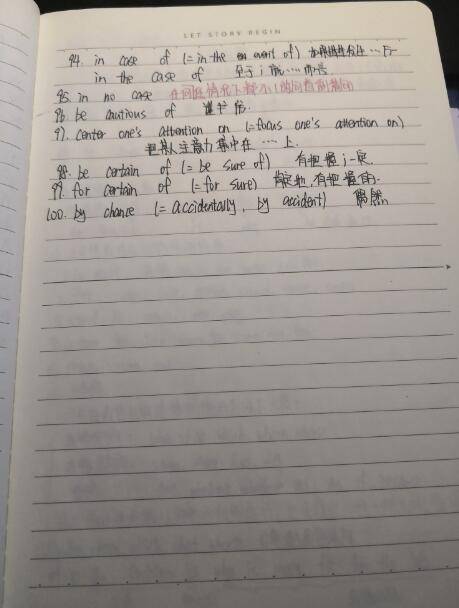 LET STORY BEGIN
94. in case of (= in the event of) 如果
in the case of 至于
95. in no case 在何种情况下都不
96. be cautious of 谨防
97. center one's attention on (= focus one's attention on)
把某人注意力集中在…上
98. be certain of (= be sure of) 有把握 一定
99. for certain of (= for sure) 肯定地,有把握的
100. by chance (= accidentally, by accident) 偶然